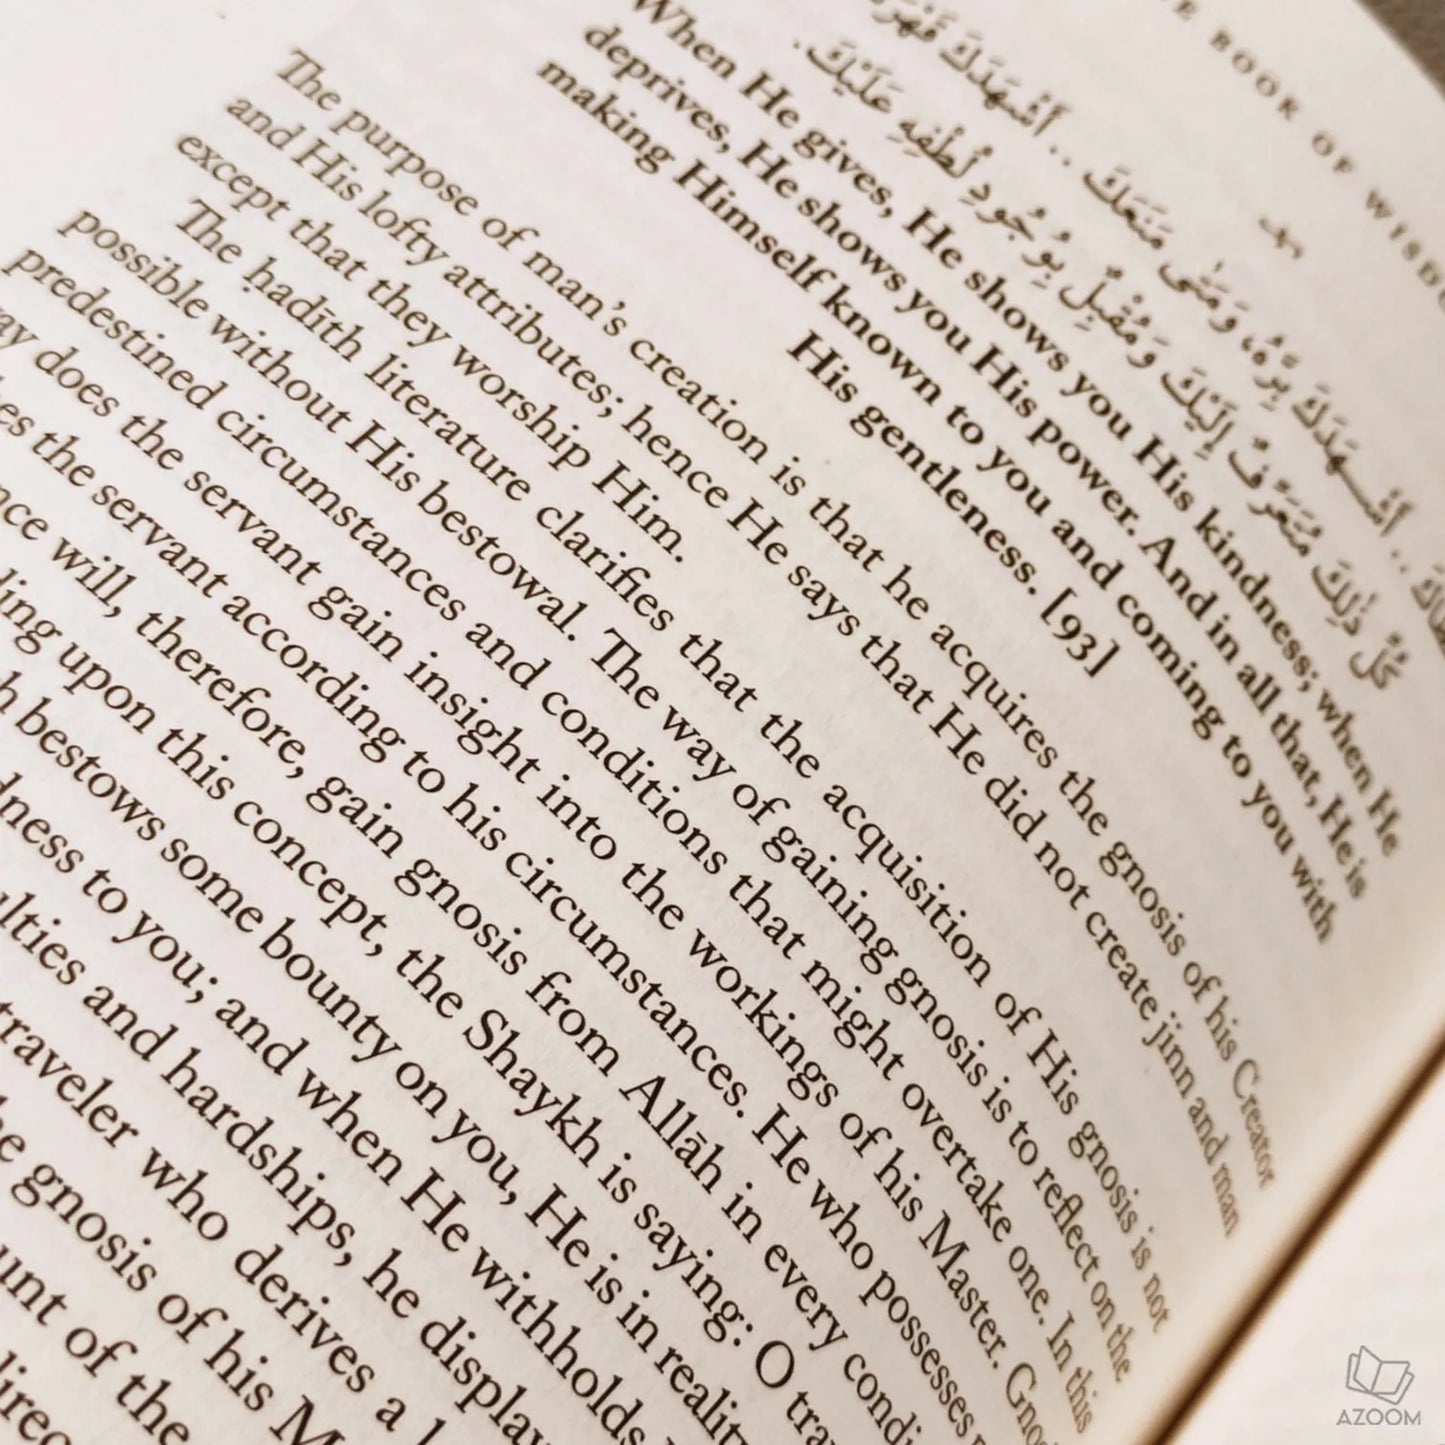 E BOOK OF WISDO
أَشْهَدَكَ بِرَّهُ، وَمَتَى مَنَعَكَ .. أَشْهَدَكَ
كُلِّ ذَلِكَ مُتَعَرِّفٌ إِلَيْكَ وَمُقْبِلٌ بِوُجُودِ لُطْفِهِ عَلَيْكَ.
When He gives, He shows you His kindness; when He
deprives, He shows you His power. And in all that, He is
making Himself known to you and coming to you with
His gentleness. [93]
The purpose of man’s creation is that he acquires the gnosis of his Creator
and His lofty attributes; hence He says that He did not create jinn and man
except that they worship Him.
The ḥadīth literature clarifies that the acquisition of His gnosis is not
possible without His bestowal. The way of gaining gnosis is to reflect on the
predestined circumstances and conditions that might overtake one. In this
ay does the servant gain insight into the workings of his Master. Gno
es the servant according to his circumstances. He who possesses
nce will, therefore, gain gnosis from Allāh in every condi
ling upon this concept, the Shaykh is saying: O tra
h bestows some bounty on you, He is in realit
dness to you; and when He withholds
ulties and hardships, he display
traveler who derives a
he gnosis of his M
unt of the
direc
AZOOM